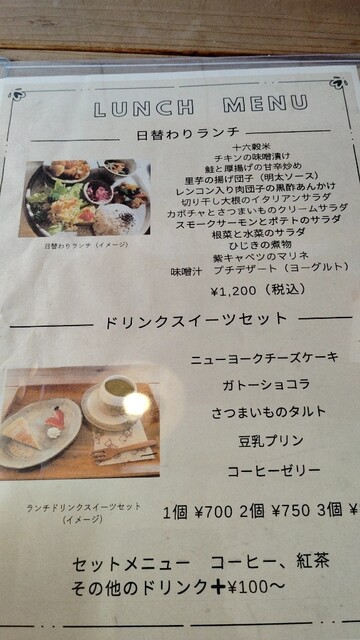 LUNCH MENU
日替わりランチ
十六穀米
チキンの味噌漬け
鮭と厚揚げの甘辛炒め
里芋の揚げ団子（明太ソース）
レンコン入り肉団子の黒酢あんかけ
切り干し大根のイタリアンサラダ
カボチャとさつまいものクリームサラダ
スモークサーモンとポテトのサラダ
根菜と水菜のサラダ
ひじきの煮物
紫キャベツのマリネ
味噌汁 プチデザート（ヨーグルト）
¥1,200（税込）
日替わりランチ（イメージ）
ドリンクスイーツセット
ニューヨークチーズケーキ
ガトーショコラ
さつまいものタルト
豆乳プリン
コーヒーゼリー
ランチドリンクスイーツセット
（イメージ）
1個 ¥700 2個 ¥750 3個 ¥
セットメニュー コーヒー、紅茶
その他のドリンク+¥100〜